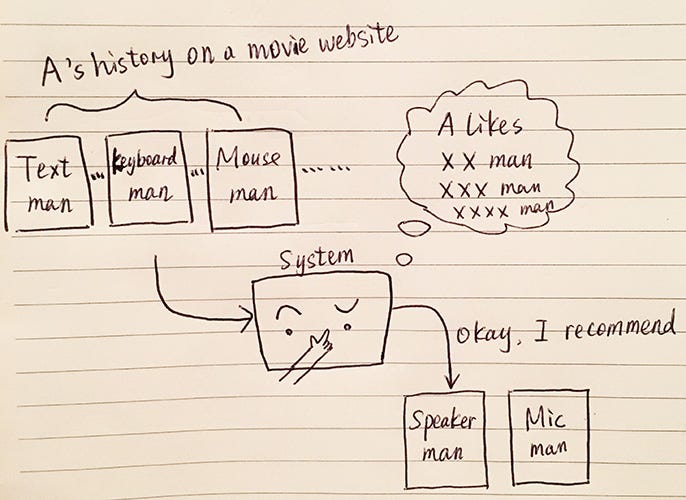 A's history on a movie website
Text
man
...
keyboard
man
...
Mouse
man
......
A likes
XX man
XXX man
XXXX man
System
okay, I recommend
Speaker
man
Mic
man